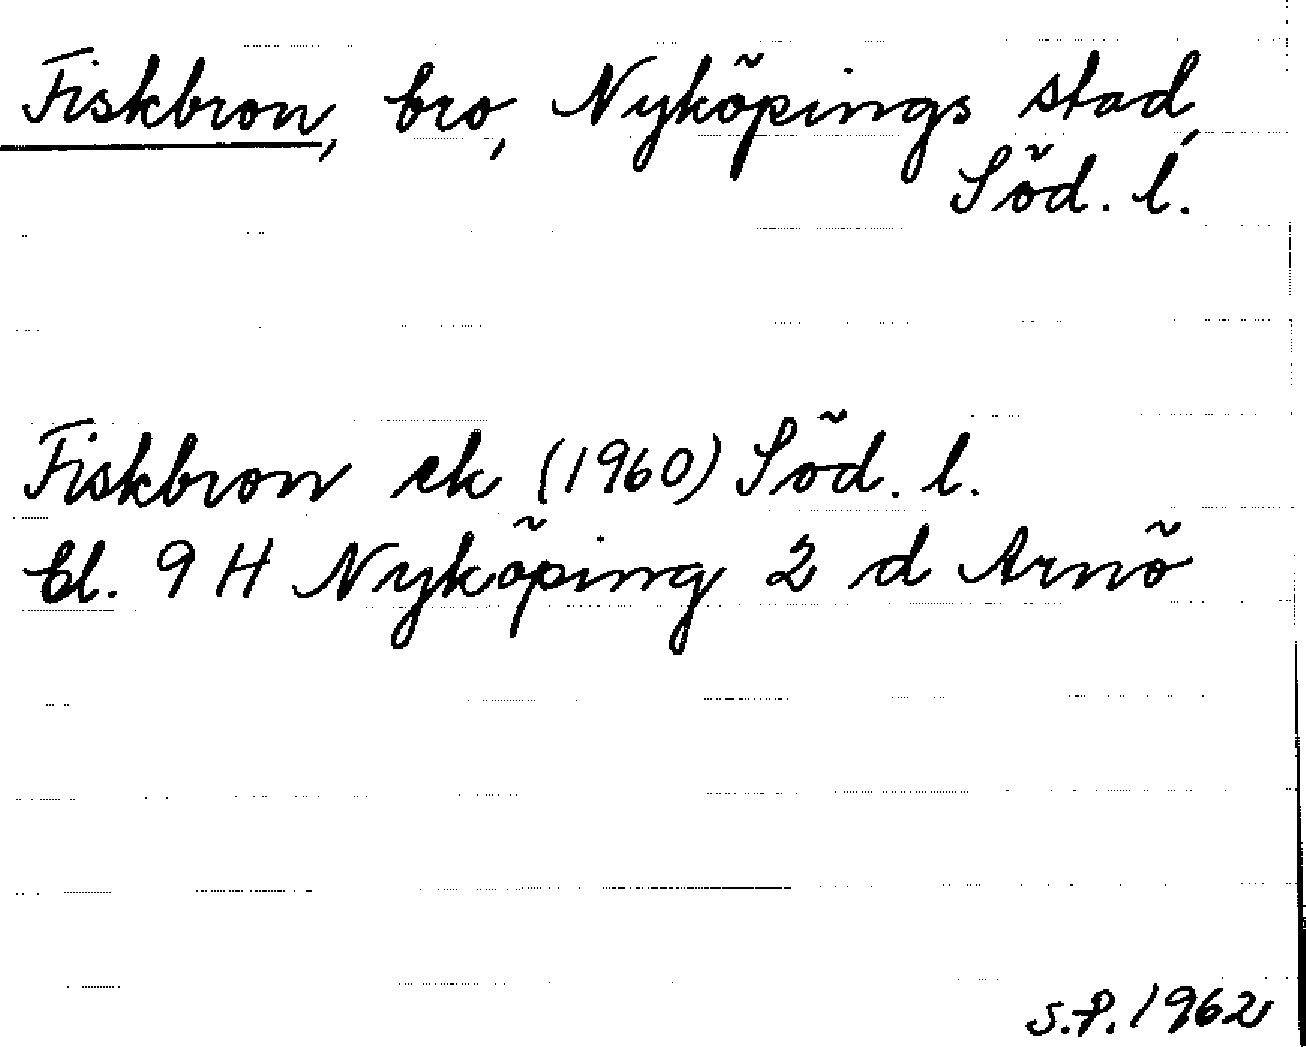 Fiskbron, bro, Nyköpings stad,
Söd. l.
Fiskbron ek (1960) Söd. l.
bl. 9 H Nyköping 2 d Arnö
S.P. 1962